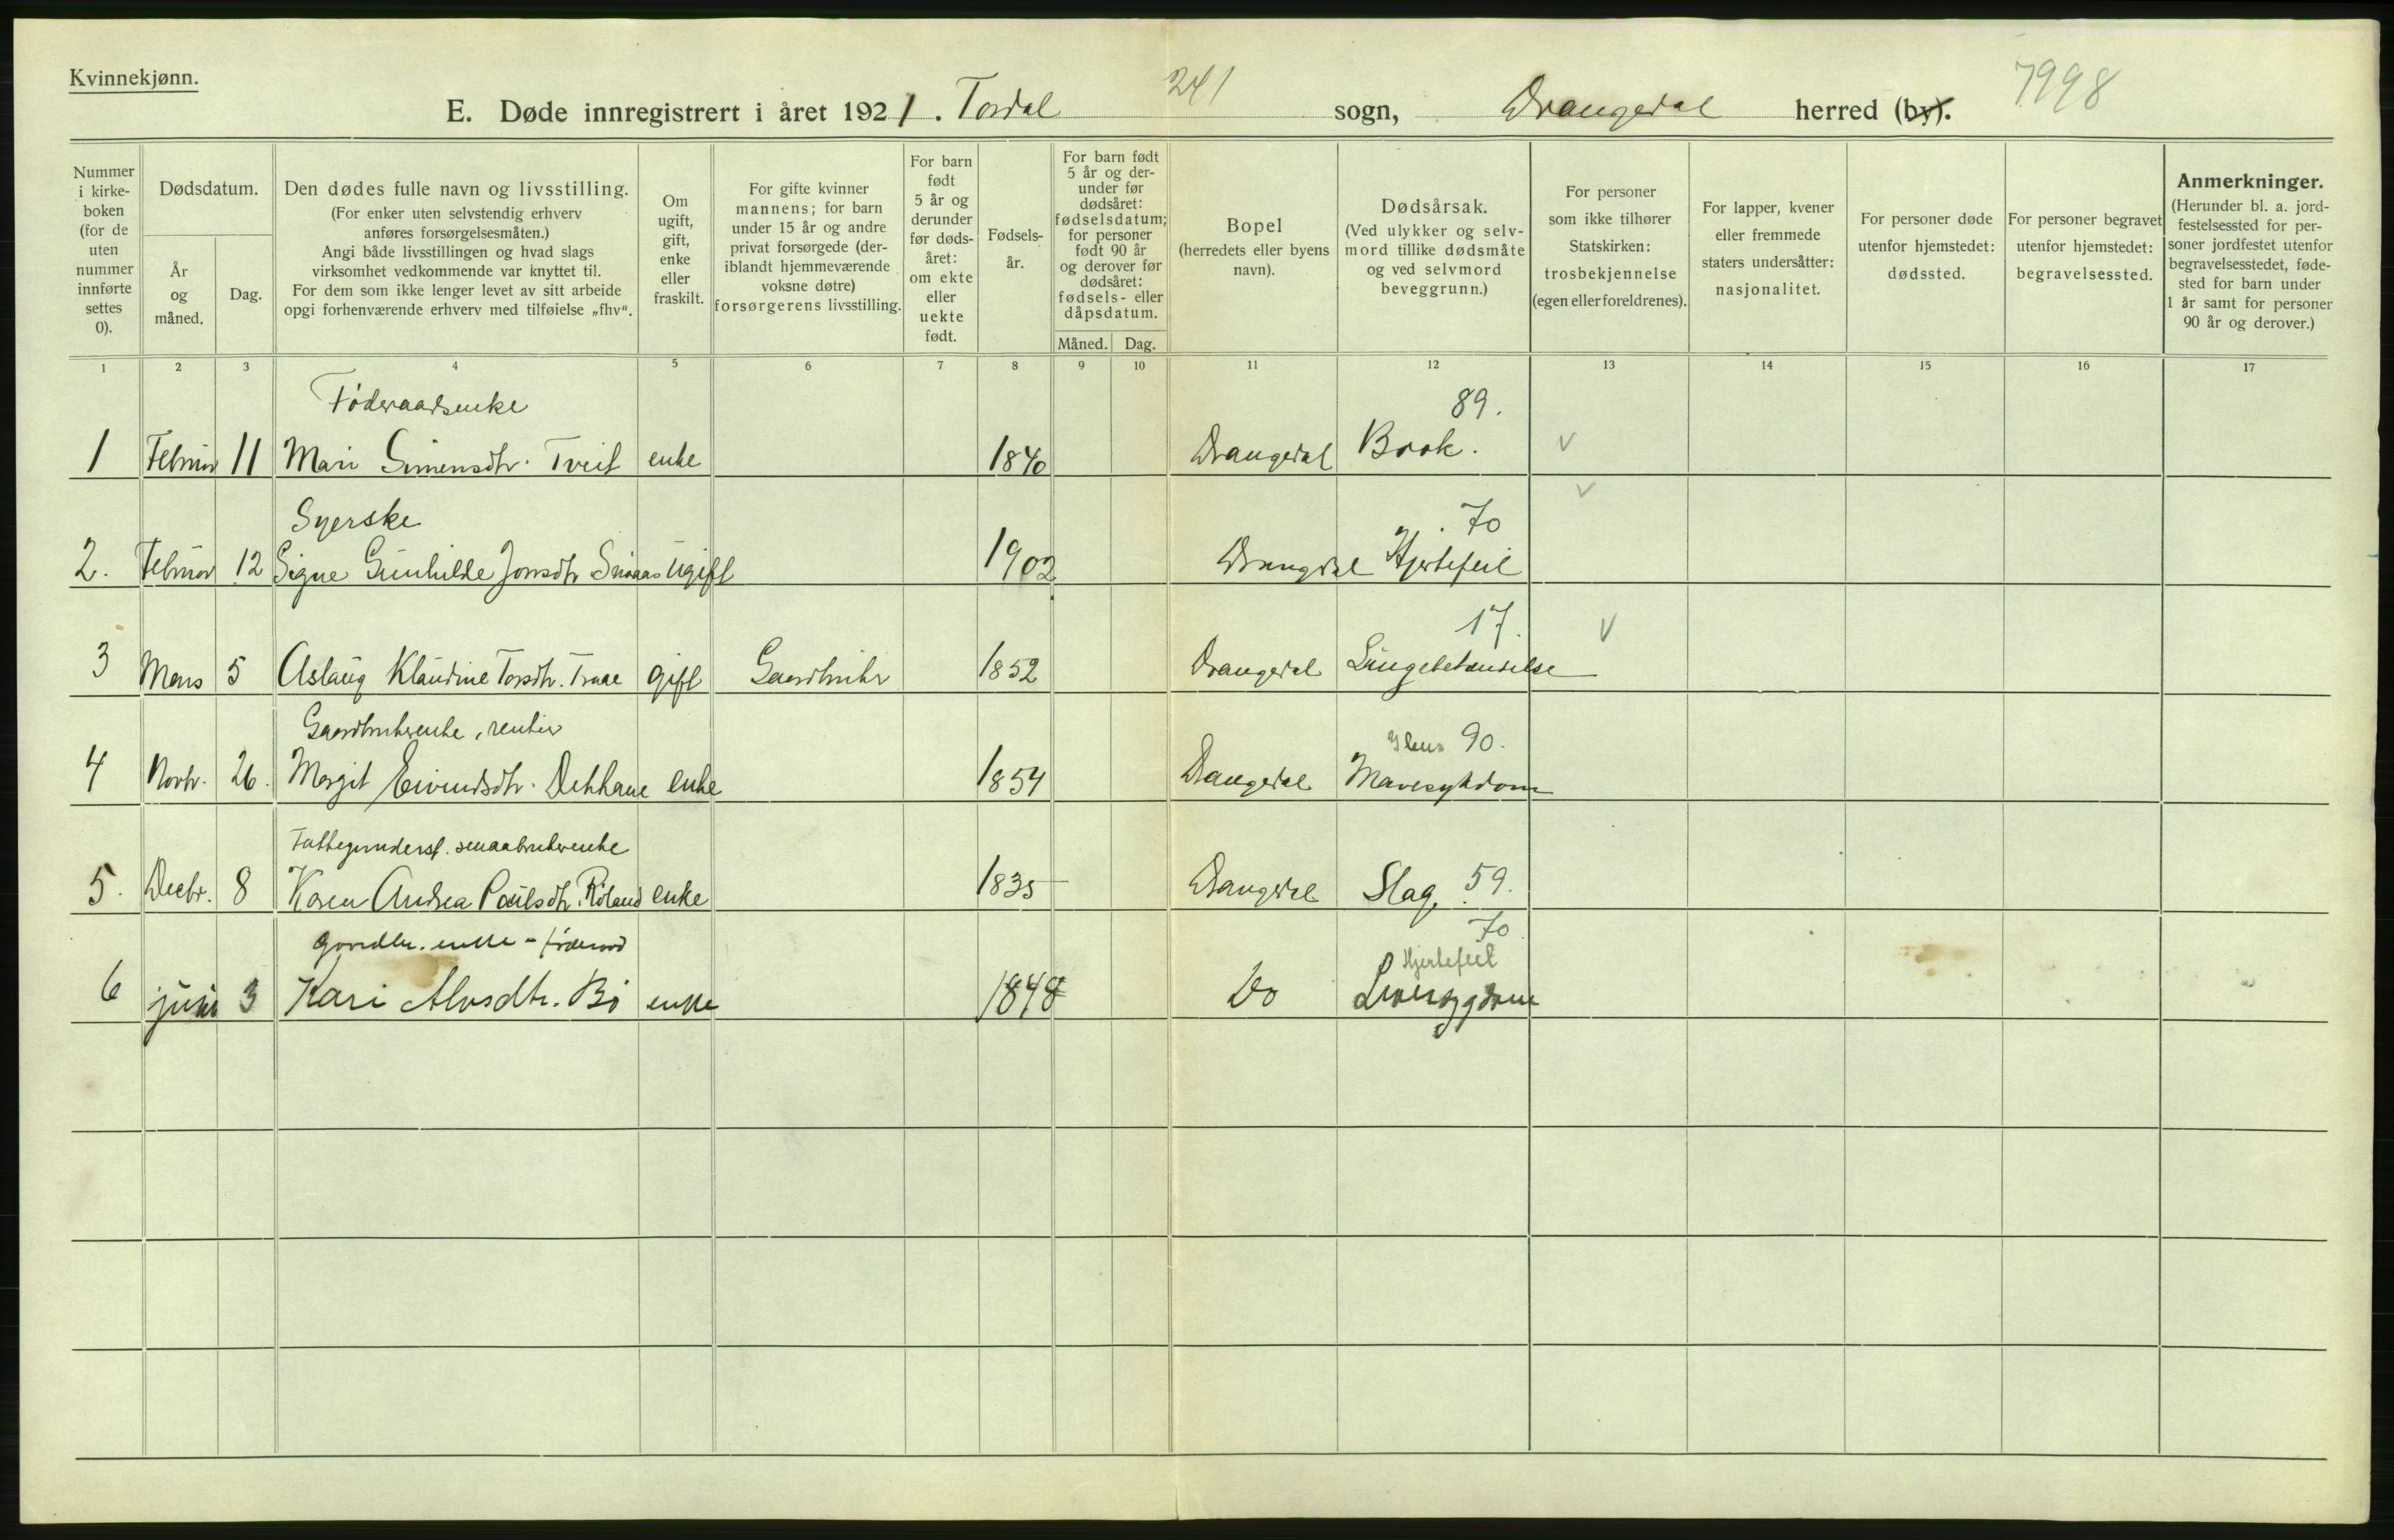 Kvinnekjønn.
241
7998
E. Døde innregistrert i året 1921. Tordal sogn, Drangedal herred (by).
Nummer i kirkeboken (for de uten nummer innførte settes 0).
Dødsdatum.
År og måned.
Dag.
Den dødes fulle navn og livsstilling.
(For enker uten selvstendig erhverv anføres forsørgelsesmåten.)
Angi både livsstillingen og hvad slags virksomhet vedkommende var knyttet til.
For dem som ikke lenger levet av sitt arbeide opgi forhenværende erhverv med tilføielse „fhv“.
Om ugift, gift, enke eller fraskilt.
For gifte kvinner mannens; for barn under 15 år og andre privat forsørgede (deriblandt hjemmeværende voksne døtre) forsørgerens livsstilling.
For barn født 5 år og derunder før dødsåret: om ekte eller uekte født.
Fødselsår.
For barn født 5 år og derunder før dødsåret: fødselsdatum; for personer født 90 år og derover før dødsåret: fødsels- eller dåpsdatum.
Måned. Dag.
Bopel (herredets eller byens navn).
Dødsårsak. (Ved ulykker og selvmord tillike dødsmåte og ved selvmord beveggrunn.)
For personer som ikke tilhører Statskirken: trosbekjennelse (egen eller foreldrenes).
For lapper, kvener eller fremmede staters undersåtter: nasjonalitet.
For personer døde utenfor hjemstedet: dødssted.
For personer begravet utenfor hjemstedet: begravelsessted.
Anmerkninger. (Herunder bl. a. jordfestelsessted for personer jordfestet utenfor begravelsesstedet, fødested for barn under 1 år samt for personer 90 år og derover.)
1 2 3 4 5 6 7 8 9 10 11 12 13 14 15 16 17
Føderaadsenke 89.
1 Februar 11 Mari Simensdtr. Tveit enke 1840 Drangedal Brok. v
Syerske 70 v
2. Februar 12 Signe Gunhilde Jonsdtr ugift 1902 Drangedal Hjertefeil
17. v
3 Mars 5 Aslaug Klaudine Torsdtr. gift Gaardbruker 1852 Drangedal Lungebetendelse
Gaardbrukerenke, rentier Ileus 90.
4 Novbr. 26. Margit Eivindsdtr. enke 1854 Drangedal Mavesykdom
Fattigunderst. smaabrukerenke
5. Decbr. 8 Karen Andrea Paulsdtr. Røland enke 1835 Drangedal Slag. 59.
gaardbr. enke - føderaad 70
Hjertefeil
6 juni 3 Kari Alvsdtr. Bø enke 1848 Do